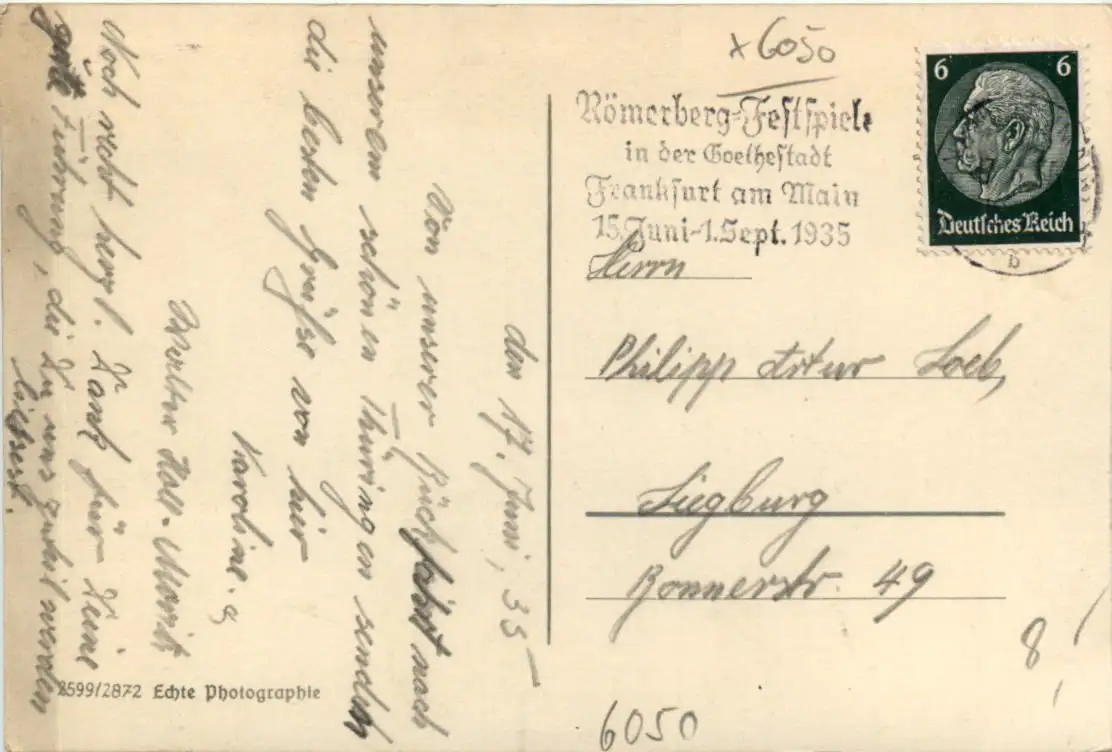 x 6050
Römerberg-Festspiele
in der Goethestadt
Frankfurt am Main
15. Juni-1. Sept. 1935
6 6
Deutsches Reich
b
Herrn
Philipp Artur Loeb,
Siegburg
Bonnerstr. 49
8,
6050
den 17. Juni, 35
Von unserer Rückfahrt nach
unserem schönen Thüringen senden
die besten Grüße von hier
Karoline &
Walter Holl-Moritz
Noch recht herzl. Dank für Deine
gute Führung, die Du uns zuteil werden
liessest.
2599/2872 Echte Photographie